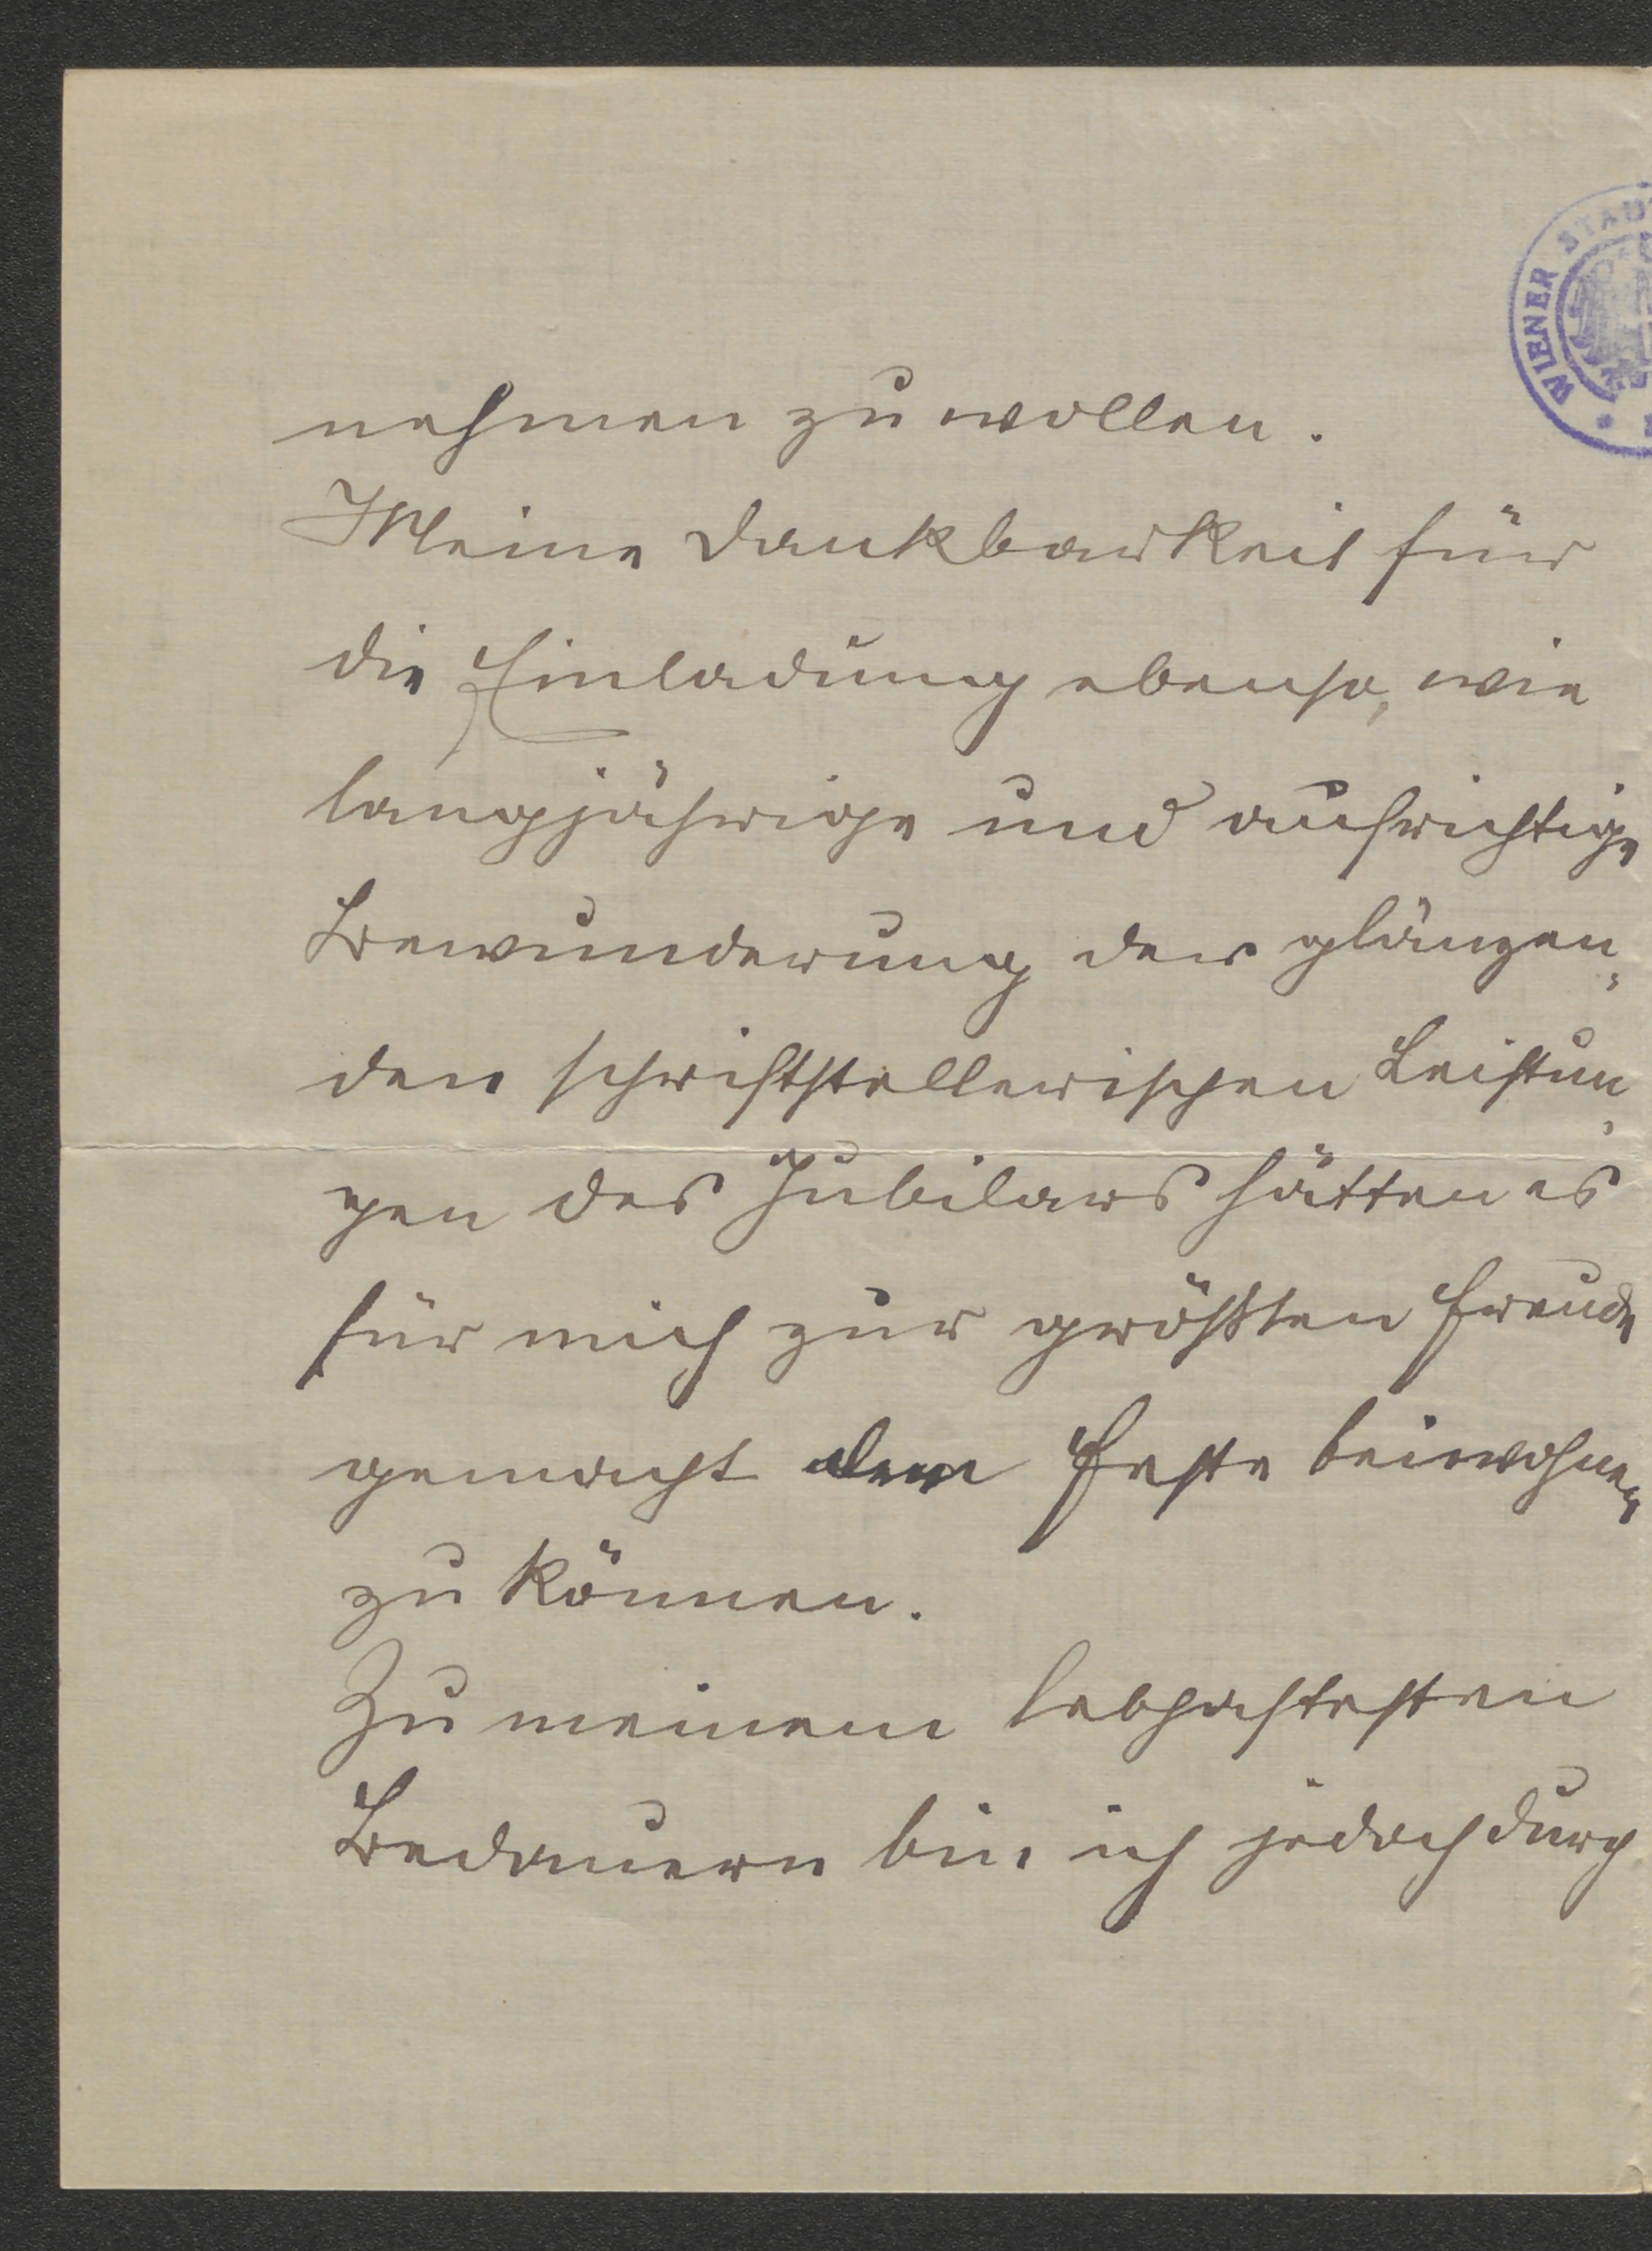 WIENER STAD
nehmen zu wollen.
Meine Dankbarkeit für
die Einladung ebenso, wie
langjährige und aufrichtige
Bewunderung der glänzen„
den schriftstellerischen Leistun„
gen des Jubilars hätten es
für mich zur größten Freude
gemacht dem Feste beiwohnen
zu können.
Zu meinem lebhaftesten
Bedauern bin ich jedoch durch